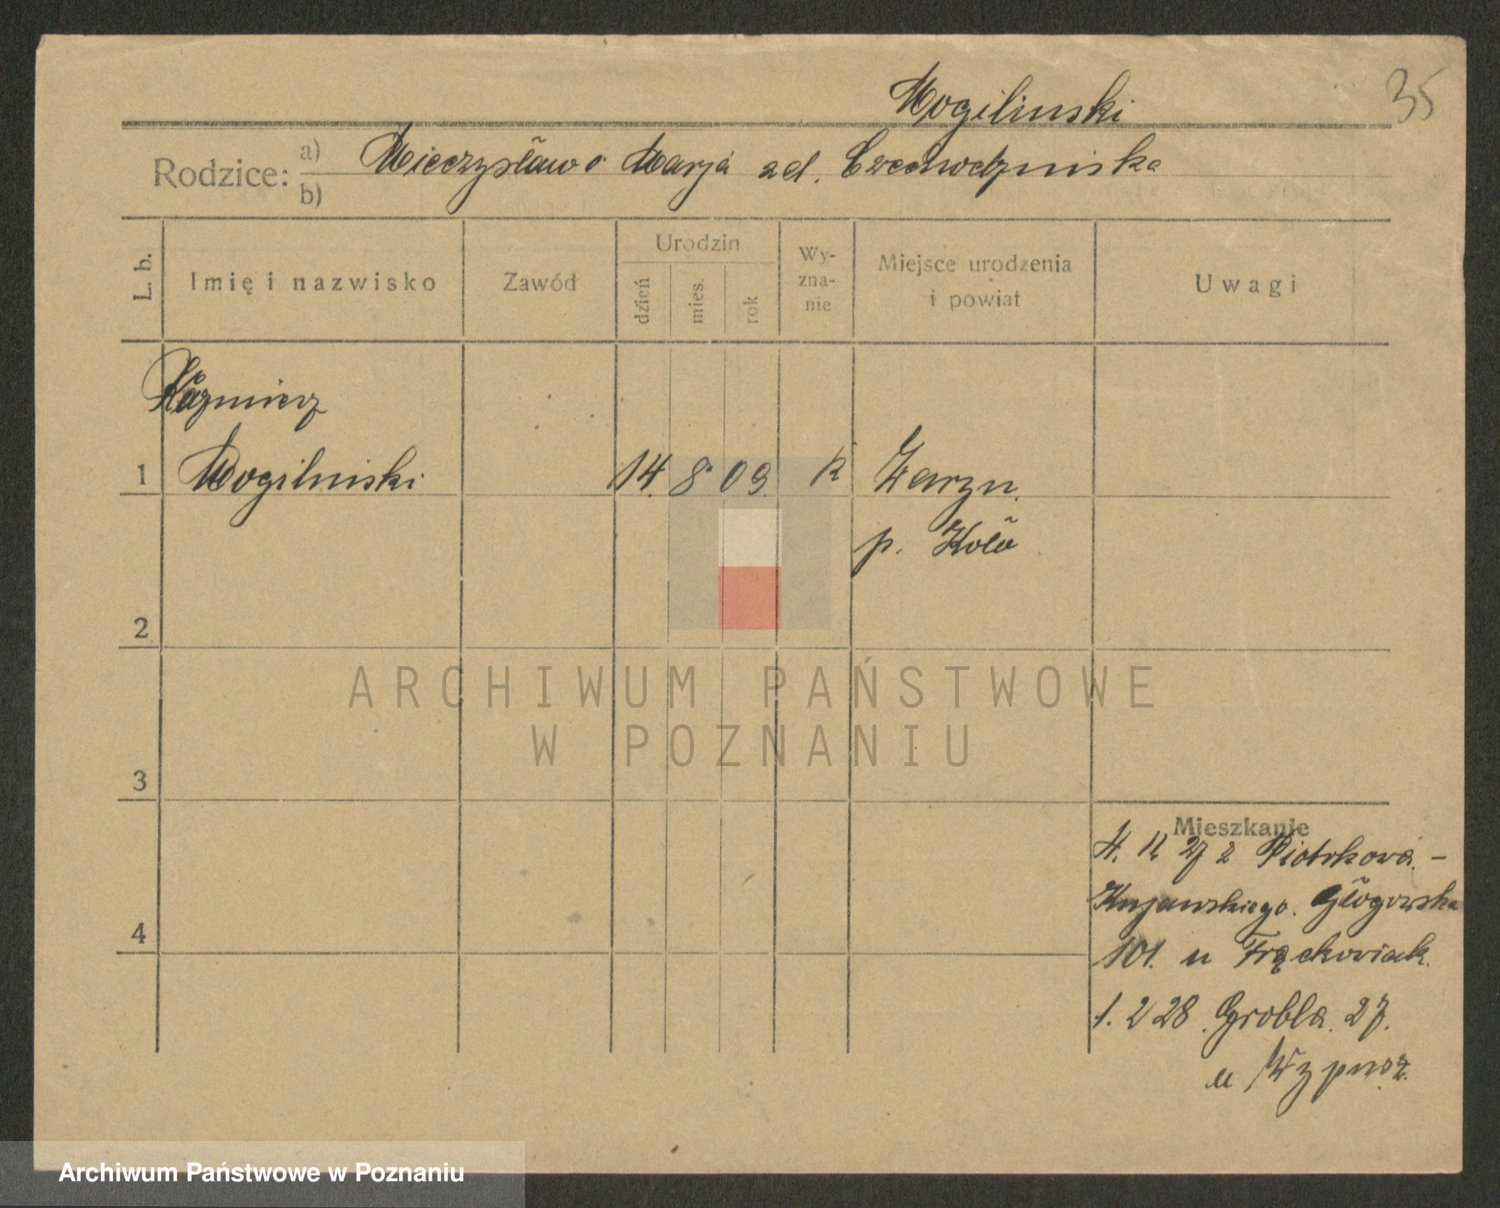 Mogilinski
35
Rodzice: a) Mieczysław o Marja
b)
L. b.
Imię i nazwisko
Zawód
Urodzin
dzień
mies.
rok
Wy-
zna-
nie
Miejsce urodzenia
i powiat
Uwagi
Kazmierz
1 Mogilniski 14. 8. 09. K
p. Koło
2
ARCHIWUM PAŃSTWOWE
W POZNANIU
3
Mieszkanie
27 z Piotrkowa -
Kujawskiego. Głogowska
4
101. u Frąckowiak.
1. 2 28. Grobla. 27.
u
Archiwum Państwowe w Poznaniu